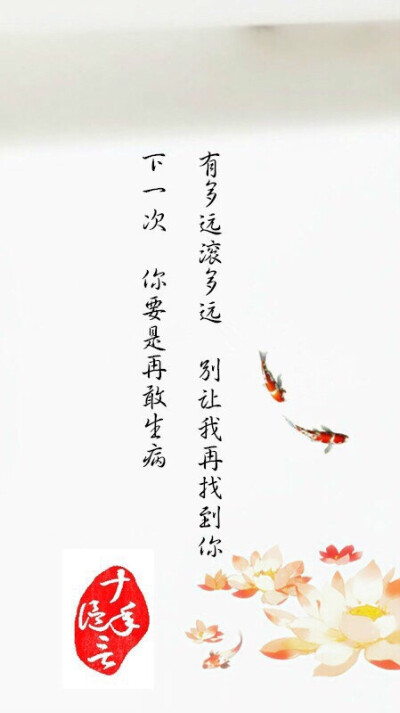 下一次 你要是再敢生病
有多远滚多远 别让我再找到你
十年